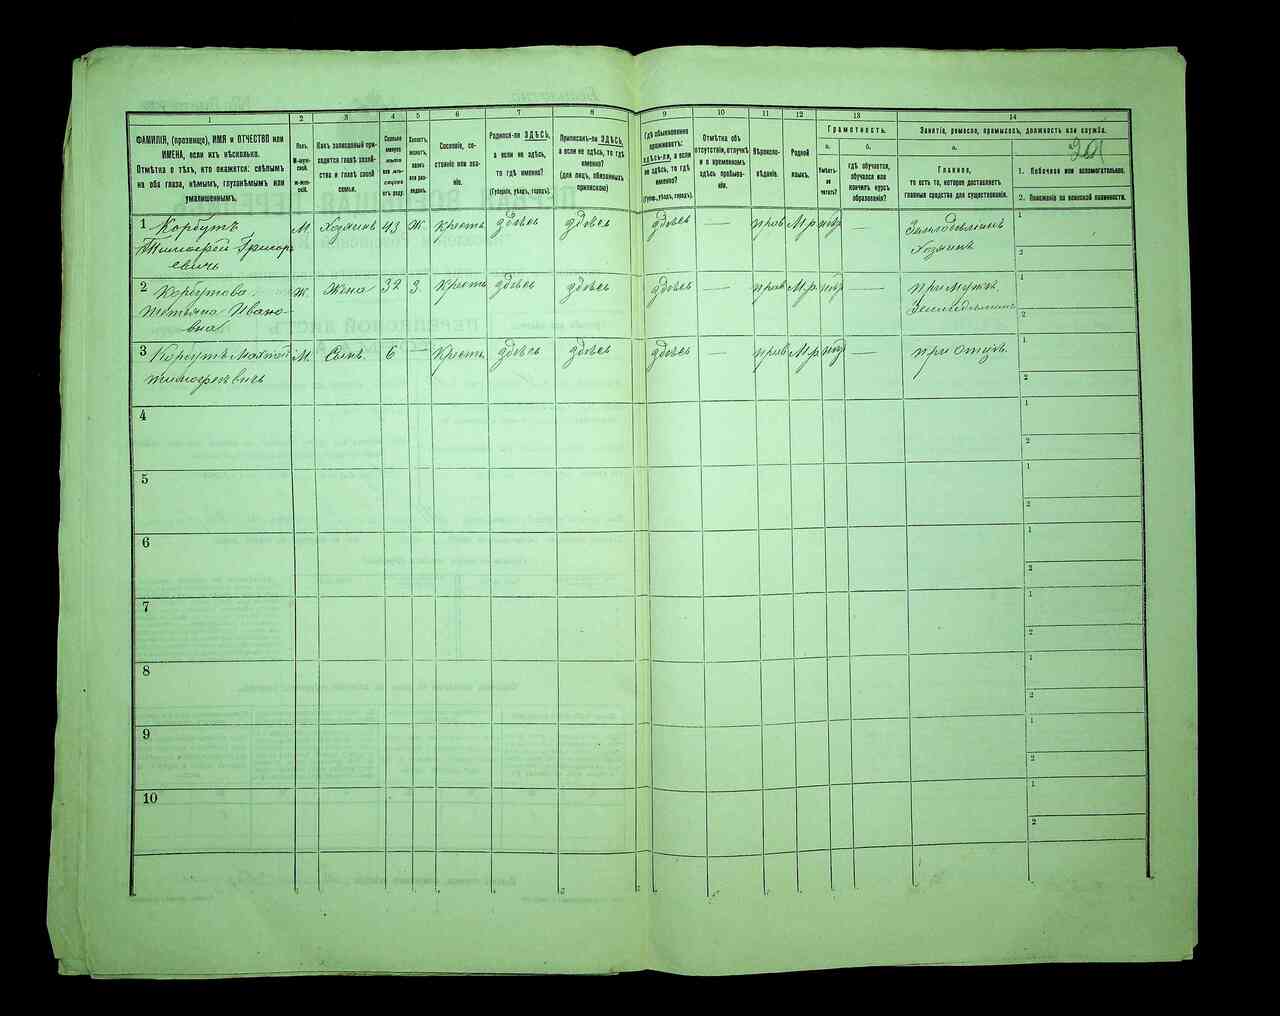 1 2 3 4 5 6 7 8 9 10 11 12 13 14
ФАМИЛІЯ, (прозвище), ИМЯ и ОТЧЕСТВО или
ИМЕНА, если ихъ нѣсколько.
Отмѣтка о тѣхъ, кто окажется: слѣпымъ
на оба глаза, нѣмымъ, глухонѣмымъ или
умалишеннымъ.
Полъ.
М-мужской.
Ж-женскій.
Какъ записанный приходится
главѣ хозяйства
и главѣ своей
семьи.
Сколько
минуло
лѣтъ
Холостъ,
женатъ,
вдовъ
или разведенъ.
Сословіе, состояніе
или званіе.
Родился-ли ЗДѢСЬ,
а если не здѣсь,
то гдѣ именно?
(Губернія, уѣздъ, городъ).
Приписанъ-ли ЗДѢСЬ,
а если не здѣсь, то гдѣ
именно?
(для лицъ, обязанныхъ
припискою)
Гдѣ обыкновенно
проживаетъ:
здѣсь-ли, а если
не здѣсь, то гдѣ
именно?
(Губер., уѣздъ, городъ).
Отмѣтка объ
отсутствіи, отлучкѣ
и о временномъ
здѣсь пребываніи.
Вѣроисповѣданіе.
Родной
языкъ.
Грамотность.
а.
Умѣетъ-
ли
читать?
б.
гдѣ обучается,
обучался или
кончилъ курсъ
образованія?
Занятіе, ремесло, промыселъ, должность или служба.
а.
Главное,
то есть то, которое доставляетъ
главныя средства для существованія.
201
1. Побочное или вспомогательное.
2. Положеніе по воинской повинности.
1 Корбутъ
Тимофей Григор
евичъ
М Хозяинъ 43 Ж Крестъ здѣсь здѣсь здѣсь — прав М.р нѣт —
Хозяинъ
1
2
2 Корбутова
Татьяна Ивано-
вна
Ж. Жена 32 З Крестъ здѣсь здѣсь здѣсь — прав М.р нѣт —
при мужѣ.
1
2
3 Корбутъ
Тимофеевичъ
М. Сынъ 6 — Крестъ. здѣсь здѣсь здѣсь — прав М.р нѣт —
при отцѣ.
1
2
4
1
2
5
1
2
6
1
2
7
1
2
8
1
2
9
1
2
10
1
2